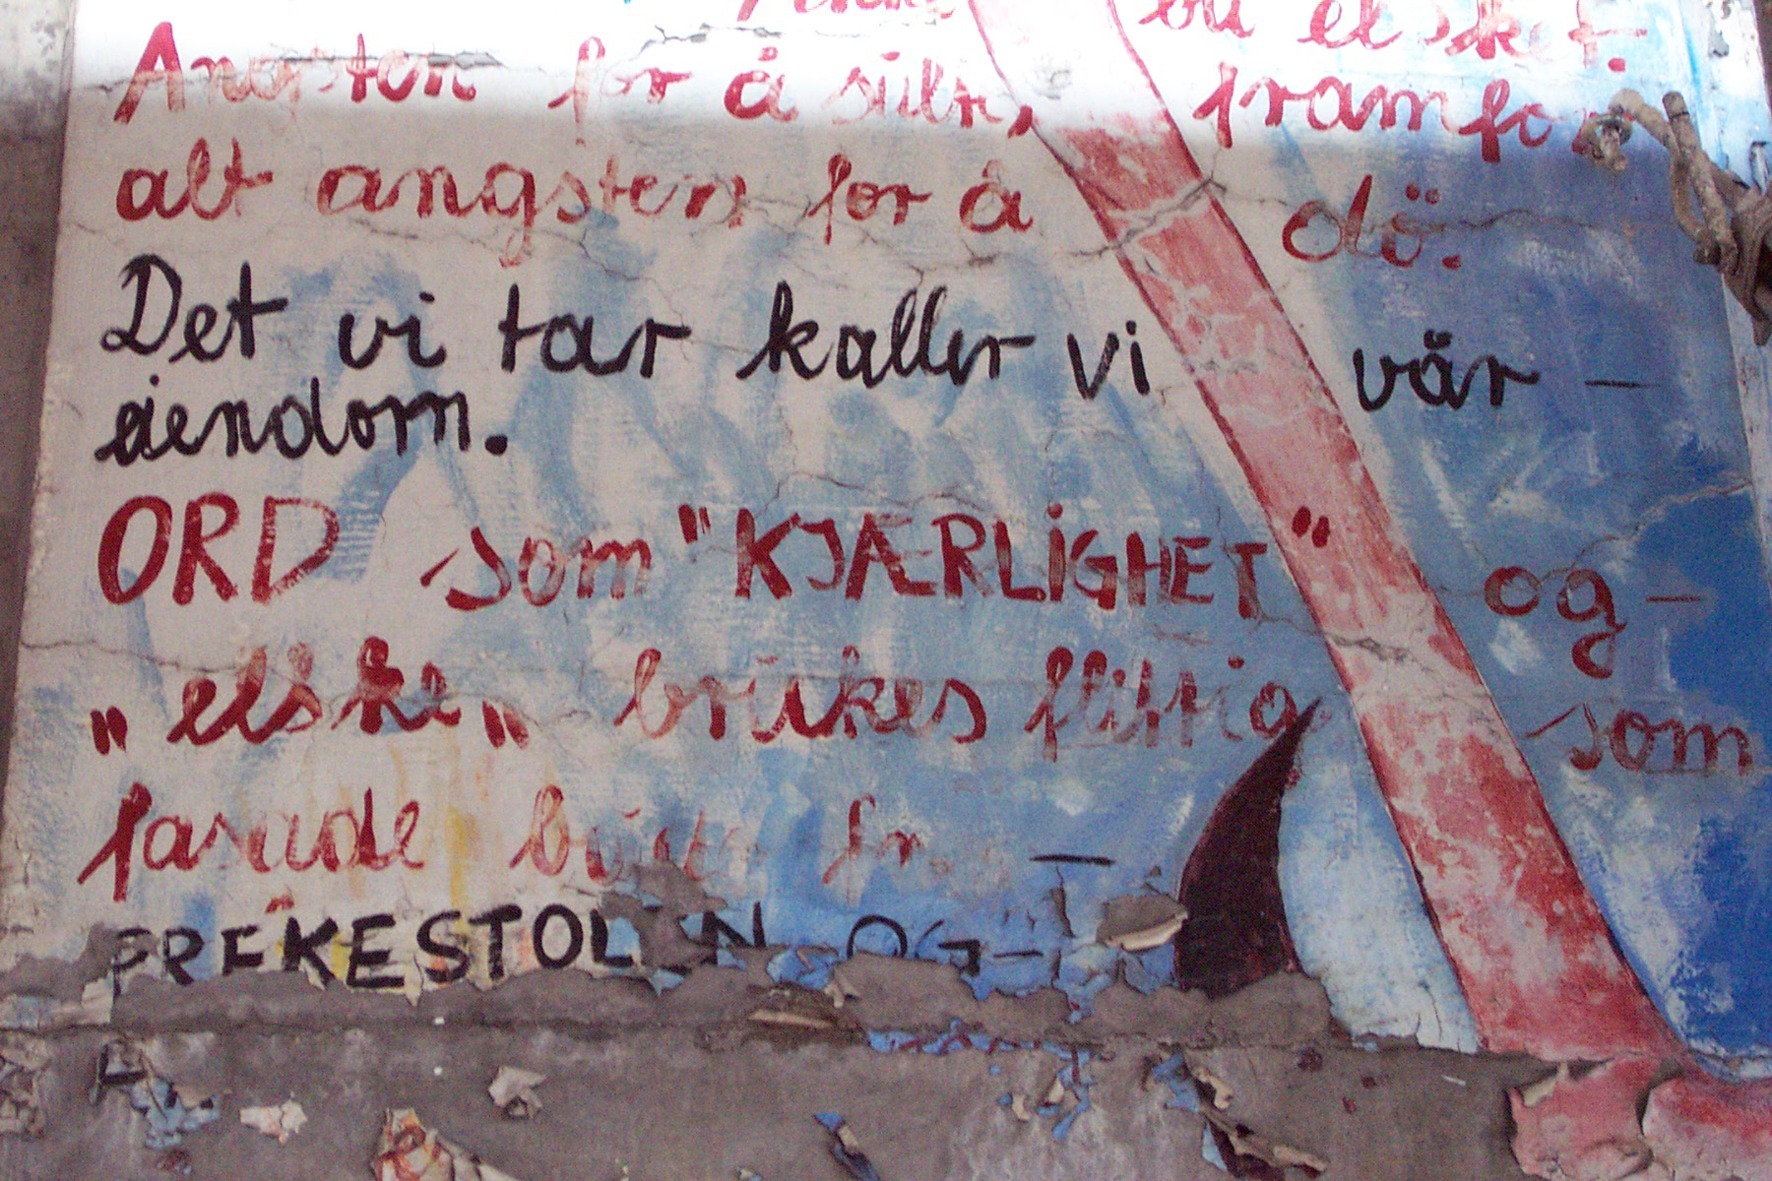 bli elsket.
Angsten for å sulte, framfor
alt angsten for å dö.
Det vi tar kaller vi vår -
eiendom.
ORD som "KJÆRLIGHET" og -
"elske" brukes flittig som
fasade både fra -
PREKESTOLEN OG -